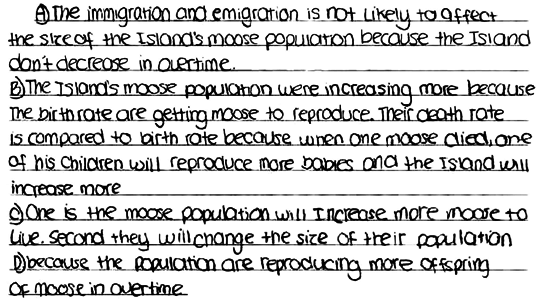 A) The immigration and emigration is not likely to affect
the size of the Island's moose population because the Island
don't decrease in overtime.
B) The Island's moose population were increasing more because
The birth rate are getting moose to reproduce. Their death rate
is compared to birth rate because when one moose died, one
of his children will reproduce more babies and the Island will
increase more
C) One is the moose population will Increase more moose to
live. Second they will change the size of their population
D) because the population are reproducing more offspring
of moose in overtime